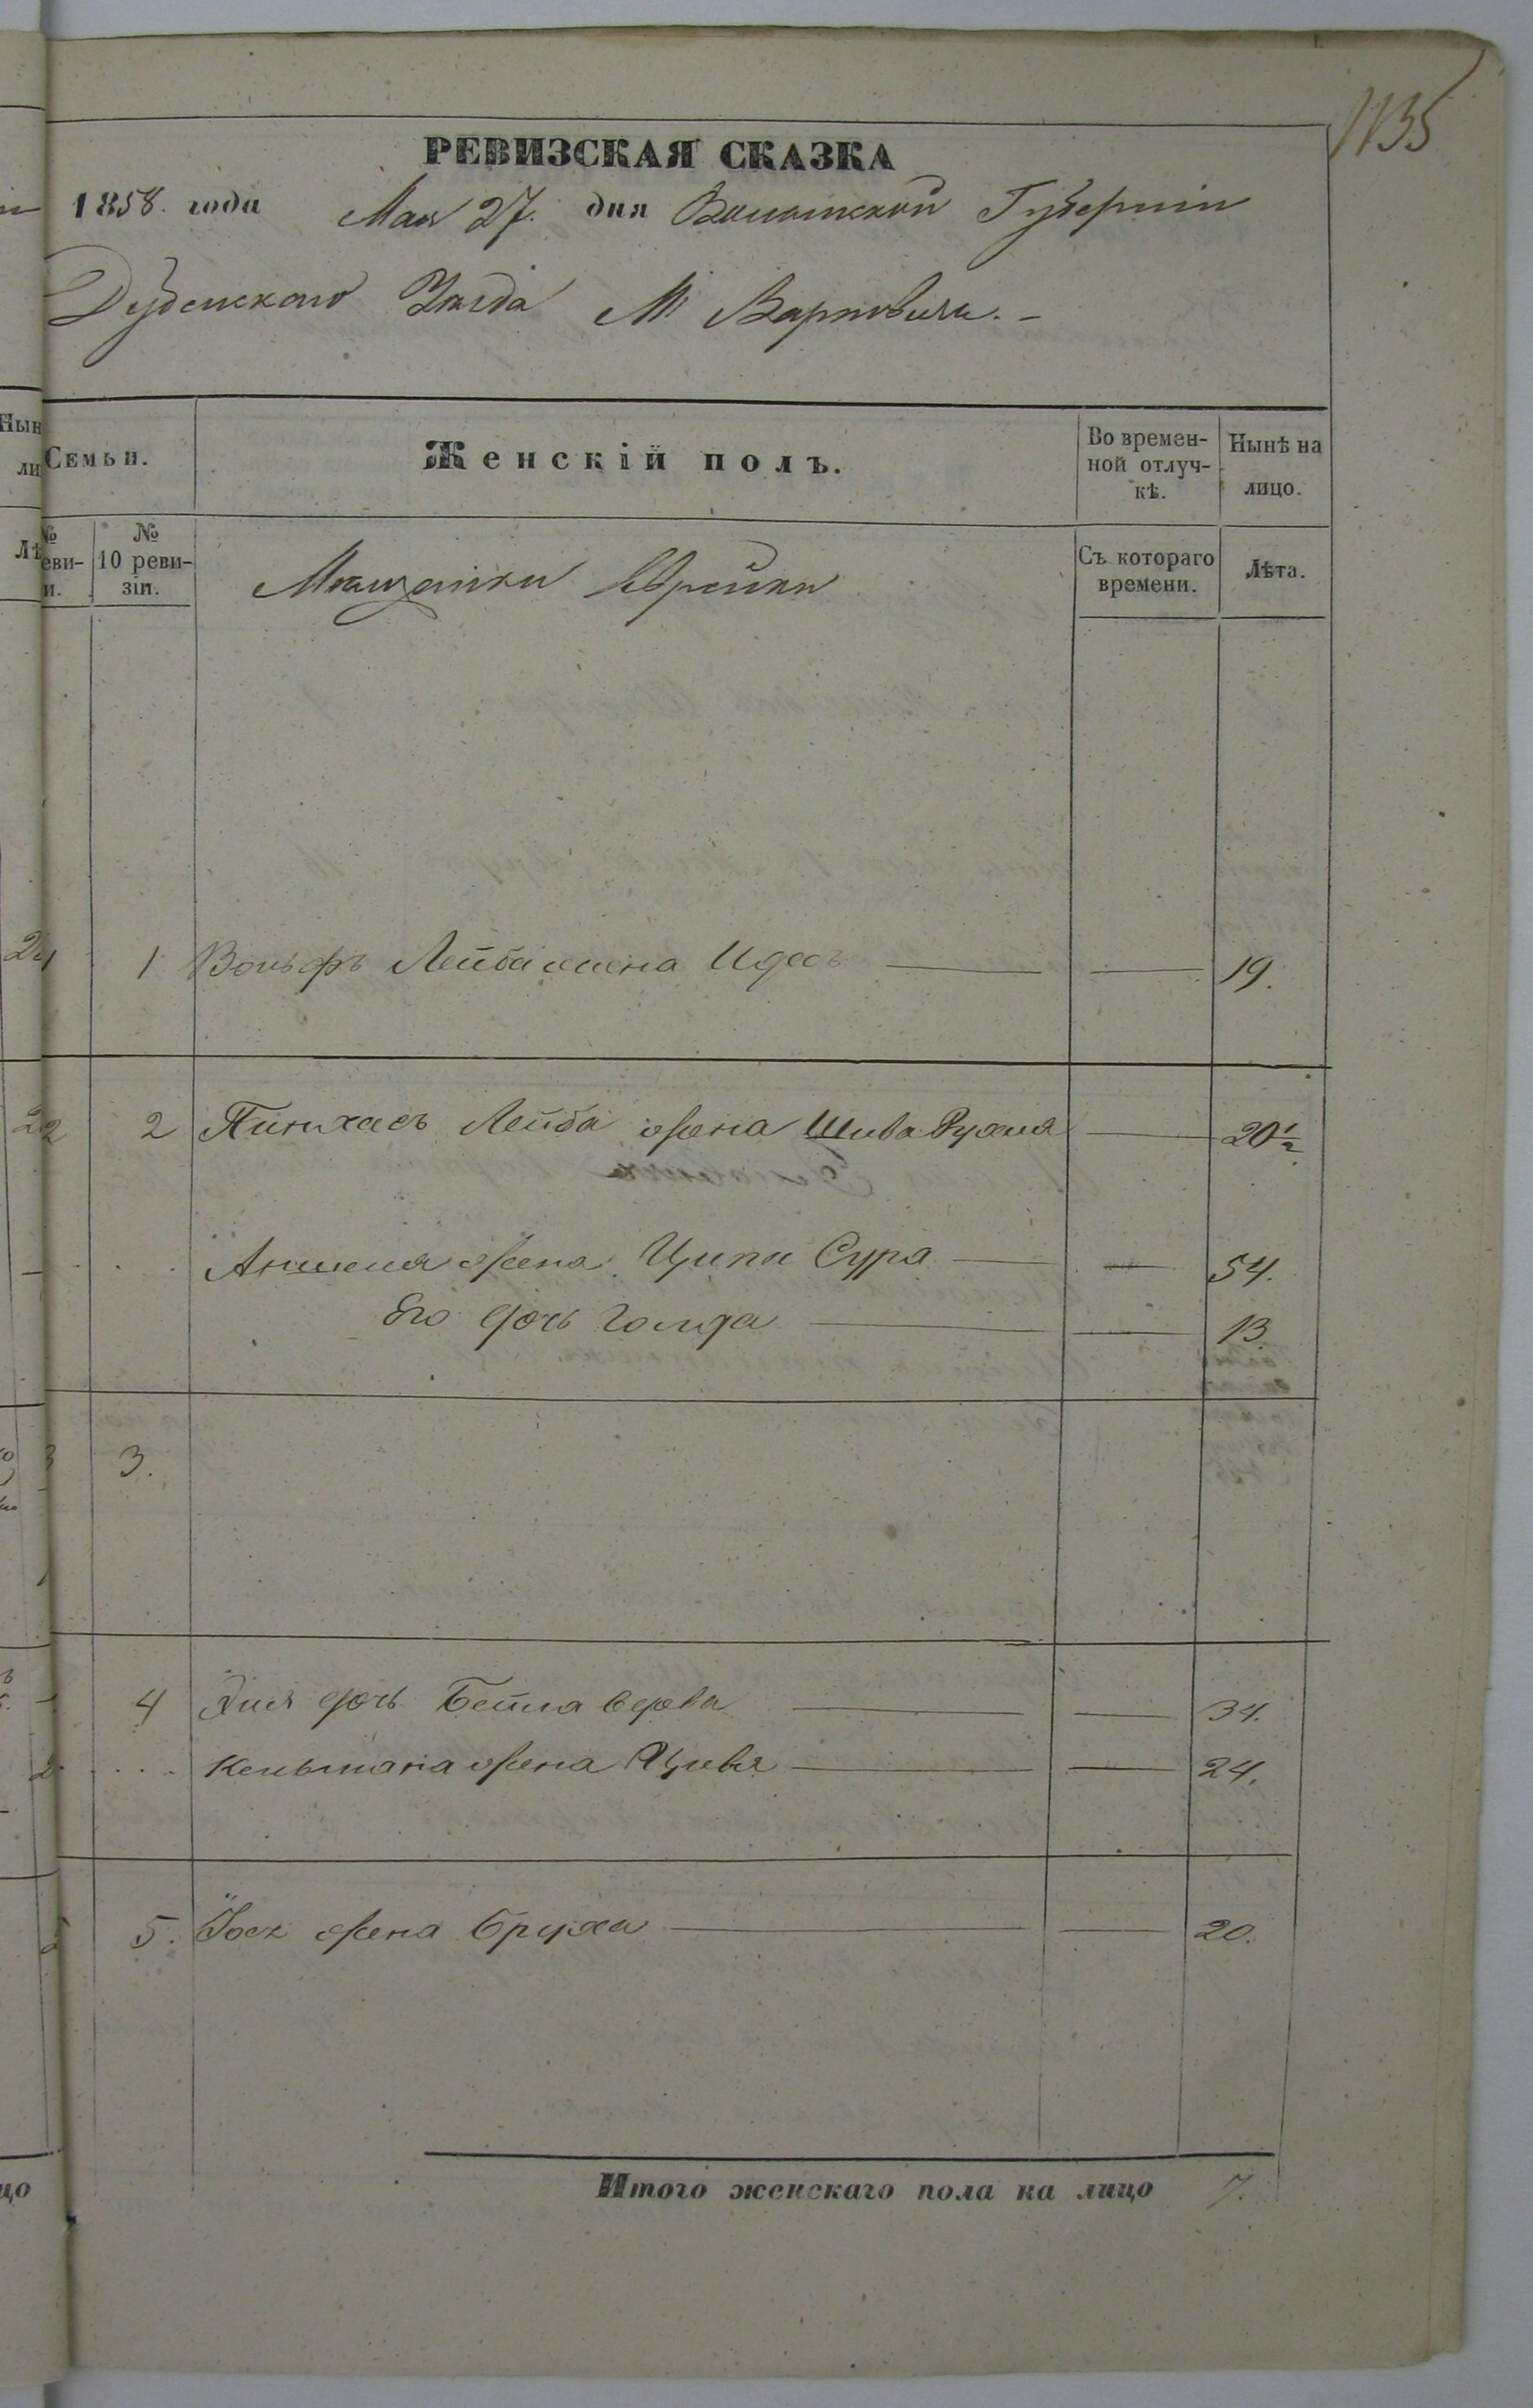 1135
РЕВИЗСКАЯ СКАЗКА
1858. года Мая 27. дня Волынской Губерніи
Дубенскаго Уѣзда М. Варковичи. –
Семьи.
Женскій полъ.
Во времен-
ной отлуч-
кѣ.
Нынѣ на
лицо.
№
еви-
и.
№
10 реви-
зіи.
Мѣщанки Еврейки
Съ котораго
времени.
Лѣта.
1 Вольфъ Лейба жена Идесъ 19.
2 Пинхасъ Лейба жена Шива Рухля 20½
Аншеля жена Ципа Сура 54.
Его дочь Голда 13
3.
4 дочь Бейла вдова 34.
Кельмана жена Цивя 24.
5. Іося жена Бруха 20.
Итого женскаго пола на лицо 7.